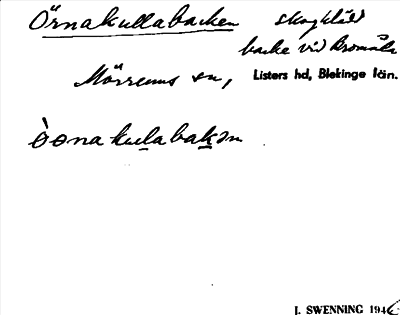 Örnakullabacken skogklädd
backe vid Bromåla
Mörrums sn, Listers hd, Blekinge län.
òonakulabakən
J. SWENNING 1946